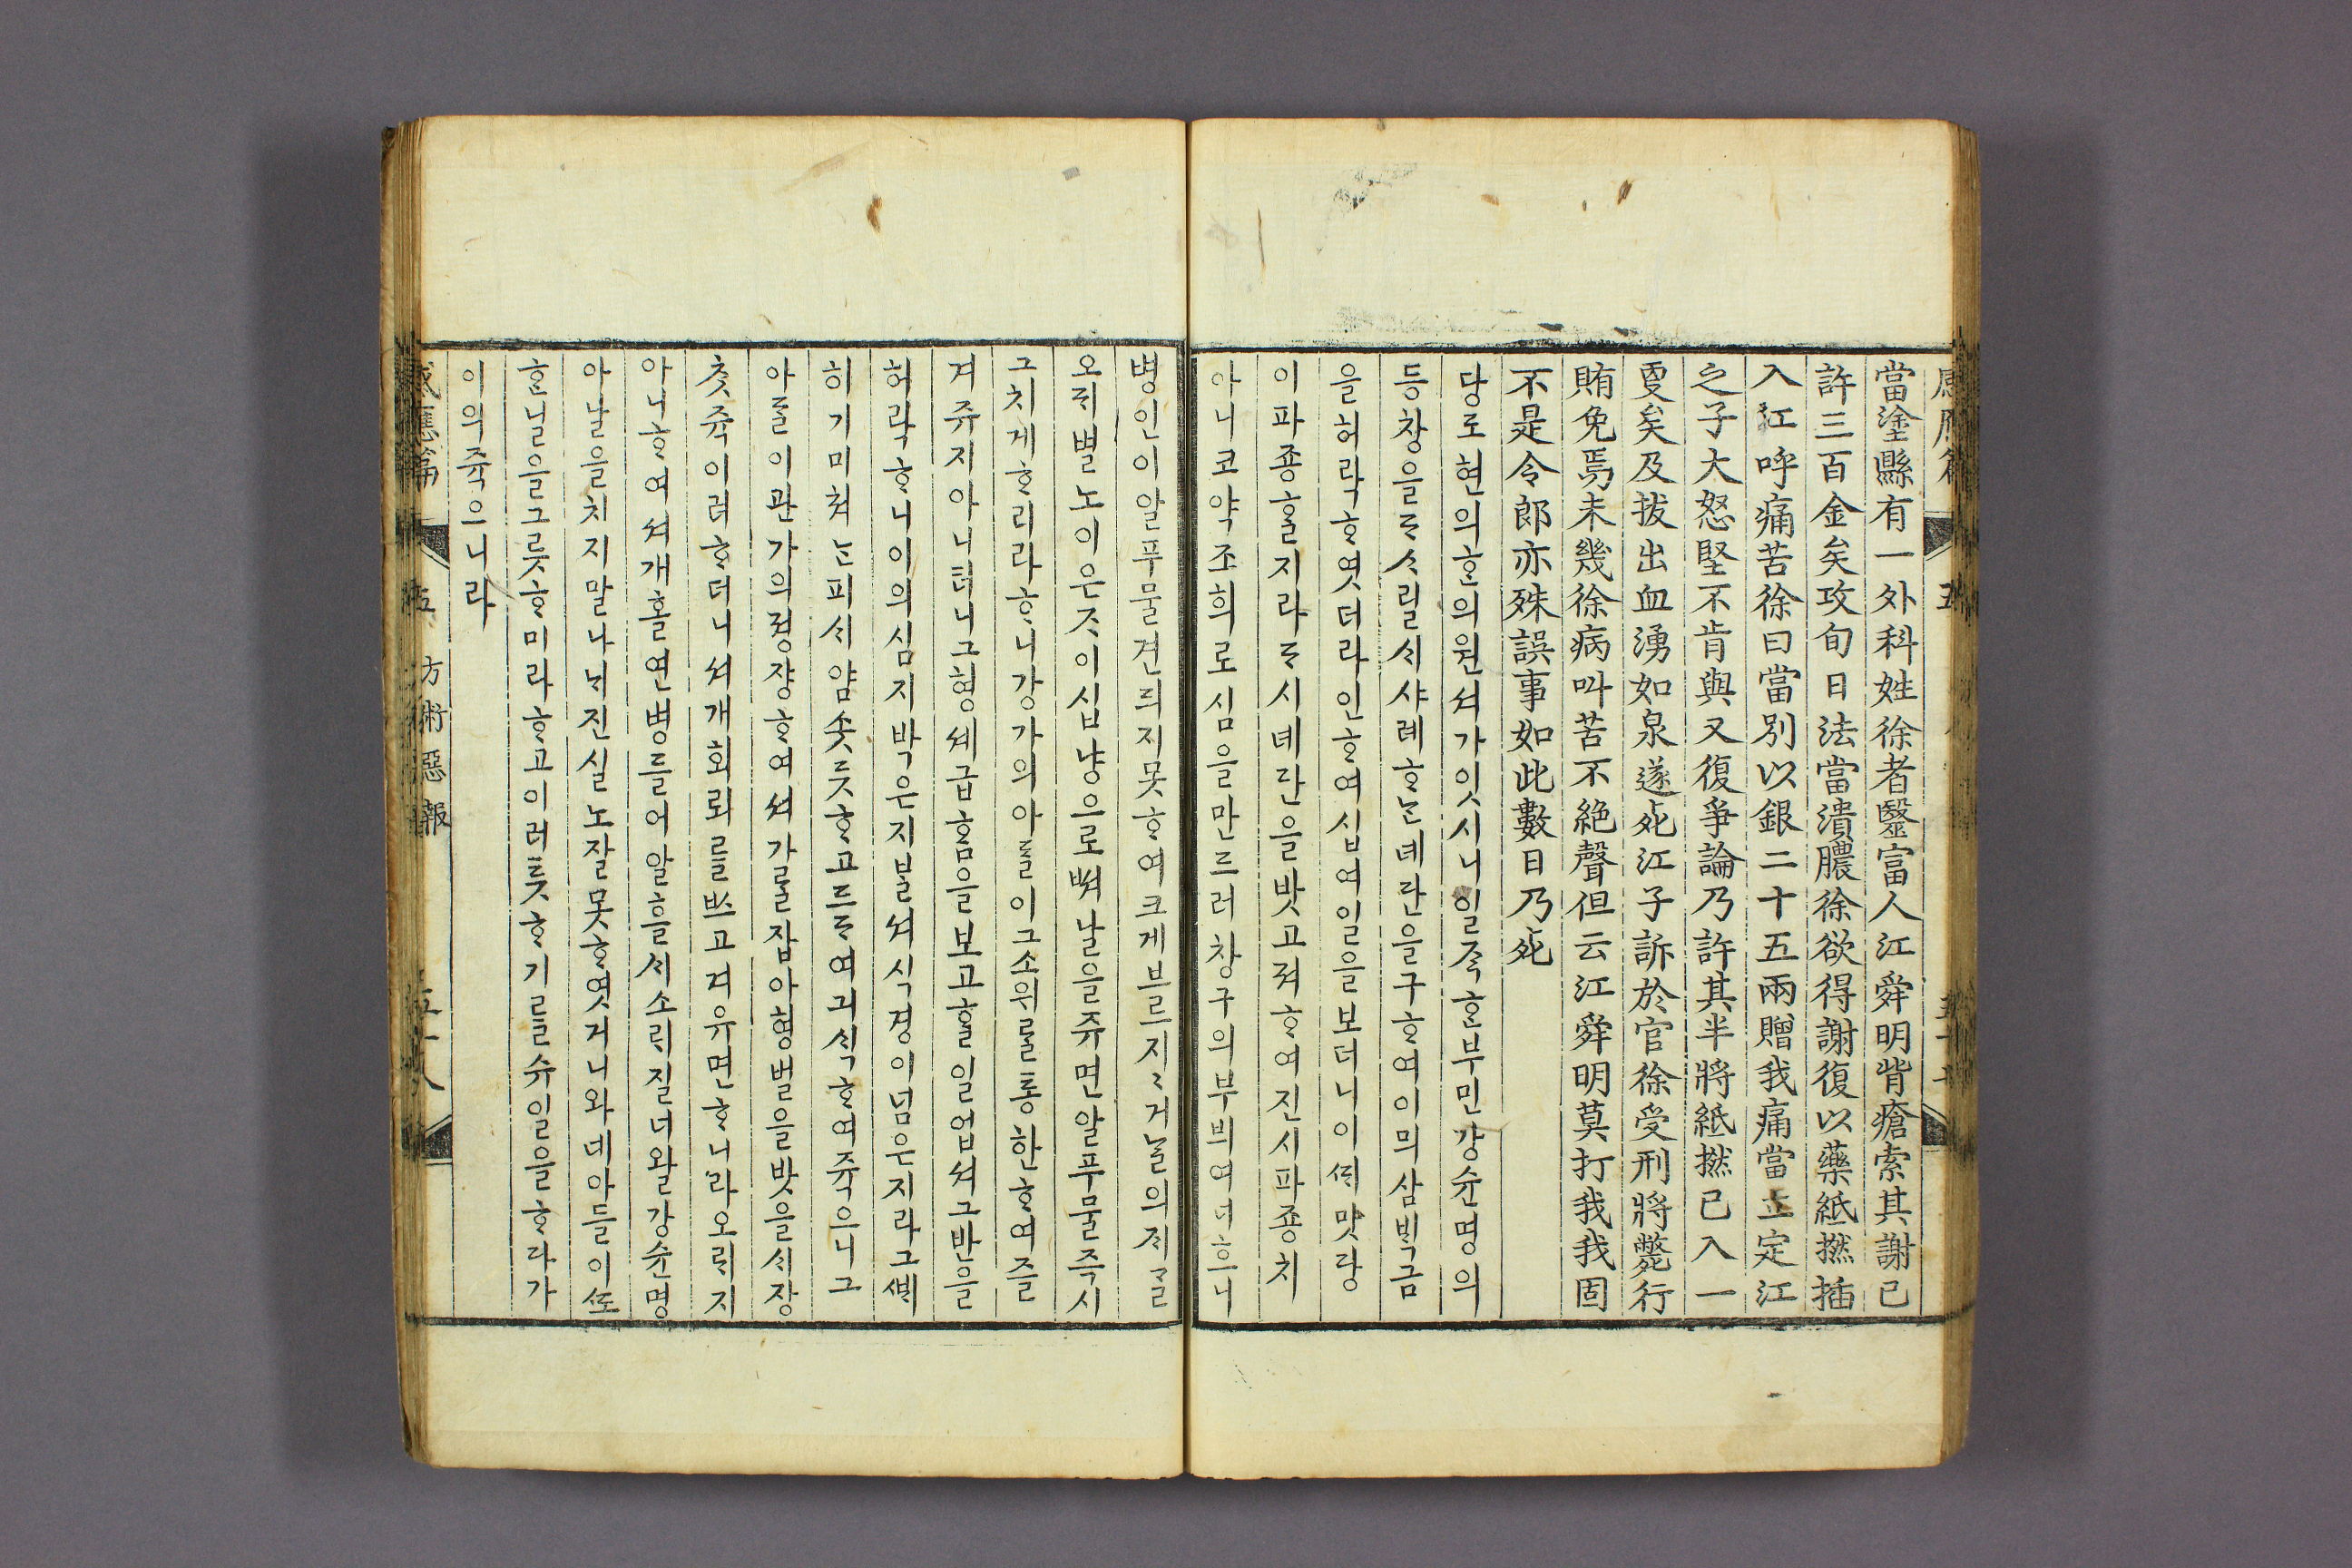 當塗縣有一外科姓徐者毉富人江舜明背瘡索其謝已
許三百金矣攻旬日法當潰膿徐欲得謝復以藥紙撚插
入江呼痛苦徐曰當別以銀二十五兩贈我痛當立定江
之子大怒堅不肯與又復爭論乃許其半將紙撚已入一
夏矣及拔出血湧如泉遂死江子訴於官徐受刑將斃行
賄免焉未幾徐病叫苦不絶聲但云江舜明莫打我我固
不是令郎亦殊誤事如此數日乃死
당로현의ᄒᆞᆫ의원셔가잇시니일즉ᄒᆞᆫ부민강슌명의
등창을ᄃᆞᄉᆞ릴ᄉᆡ샤례ᄒᆞᄂᆞᆫ데란을구ᄒᆞ여이믜삼ᄇᆡᆨ금
을허락ᄒᆞ엿더라인ᄒᆞ여십여일을보더니이ᄯᆡ맛랑
이파죵ᄒᆞᆯ지라ᄃᆞ시녜란을밧고져ᄒᆞ여진시파죵치
아니코약죠희로심을만드러창구의부븨여너흐니
병인이알푸물견듸지못ᄒᆞ여크게브르지지거ᄂᆞᆯ의ᄌᆡᄀᆞᆯ
오ᄃᆡ별노이은ᄌᆞ이십냥으로ᄡᅥ날을쥬면알푸물즉시
그치게ᄒᆞ리라ᄒᆞ니강가의아ᄃᆞᆯ이그소위ᄅᆞᆯ통한ᄒᆞ여즐
겨쥬지아니터니그형셰급ᄒᆞᆷ을보고ᄒᆞᆯ일업셔그반을
허락ᄒᆞ니이의심지박은지불셔식경이넘은지라그ᄲᅢ
히기미쳐ᄂᆞᆫ피ᄉᆡ암솟듯ᄒᆞ고드ᄃᆞ여긔ᄉᆡᆨᄒᆞ여쥭으니그
아ᄃᆞᆯ이관가의졍쟝ᄒᆞ여셔가ᄅᆞᆯ잡아형벌을밧을ᄉᆡ장
ᄎᆞᆺ쥭이려ᄒᆞ더니셔개회뢰를ᄡᅳ고겨유면ᄒᆞ니라오ᄅᆡ지
아니ᄒᆞ여셔개홀연병들어알흘ᄉᆡ소ᄅᆡ질너왈강슌명
아날을치지말나ᄂᆡ진실노잘못ᄒᆞ엿거니와네아들이ᄯᅩ
ᄒᆞᆫ닐을그릇ᄒᆞ미라ᄒᆞ고이러틋ᄒᆞ기를슈일을ᄒᆞ다가
이의쥭으니라
感應篇 五 方術惡報 五十八